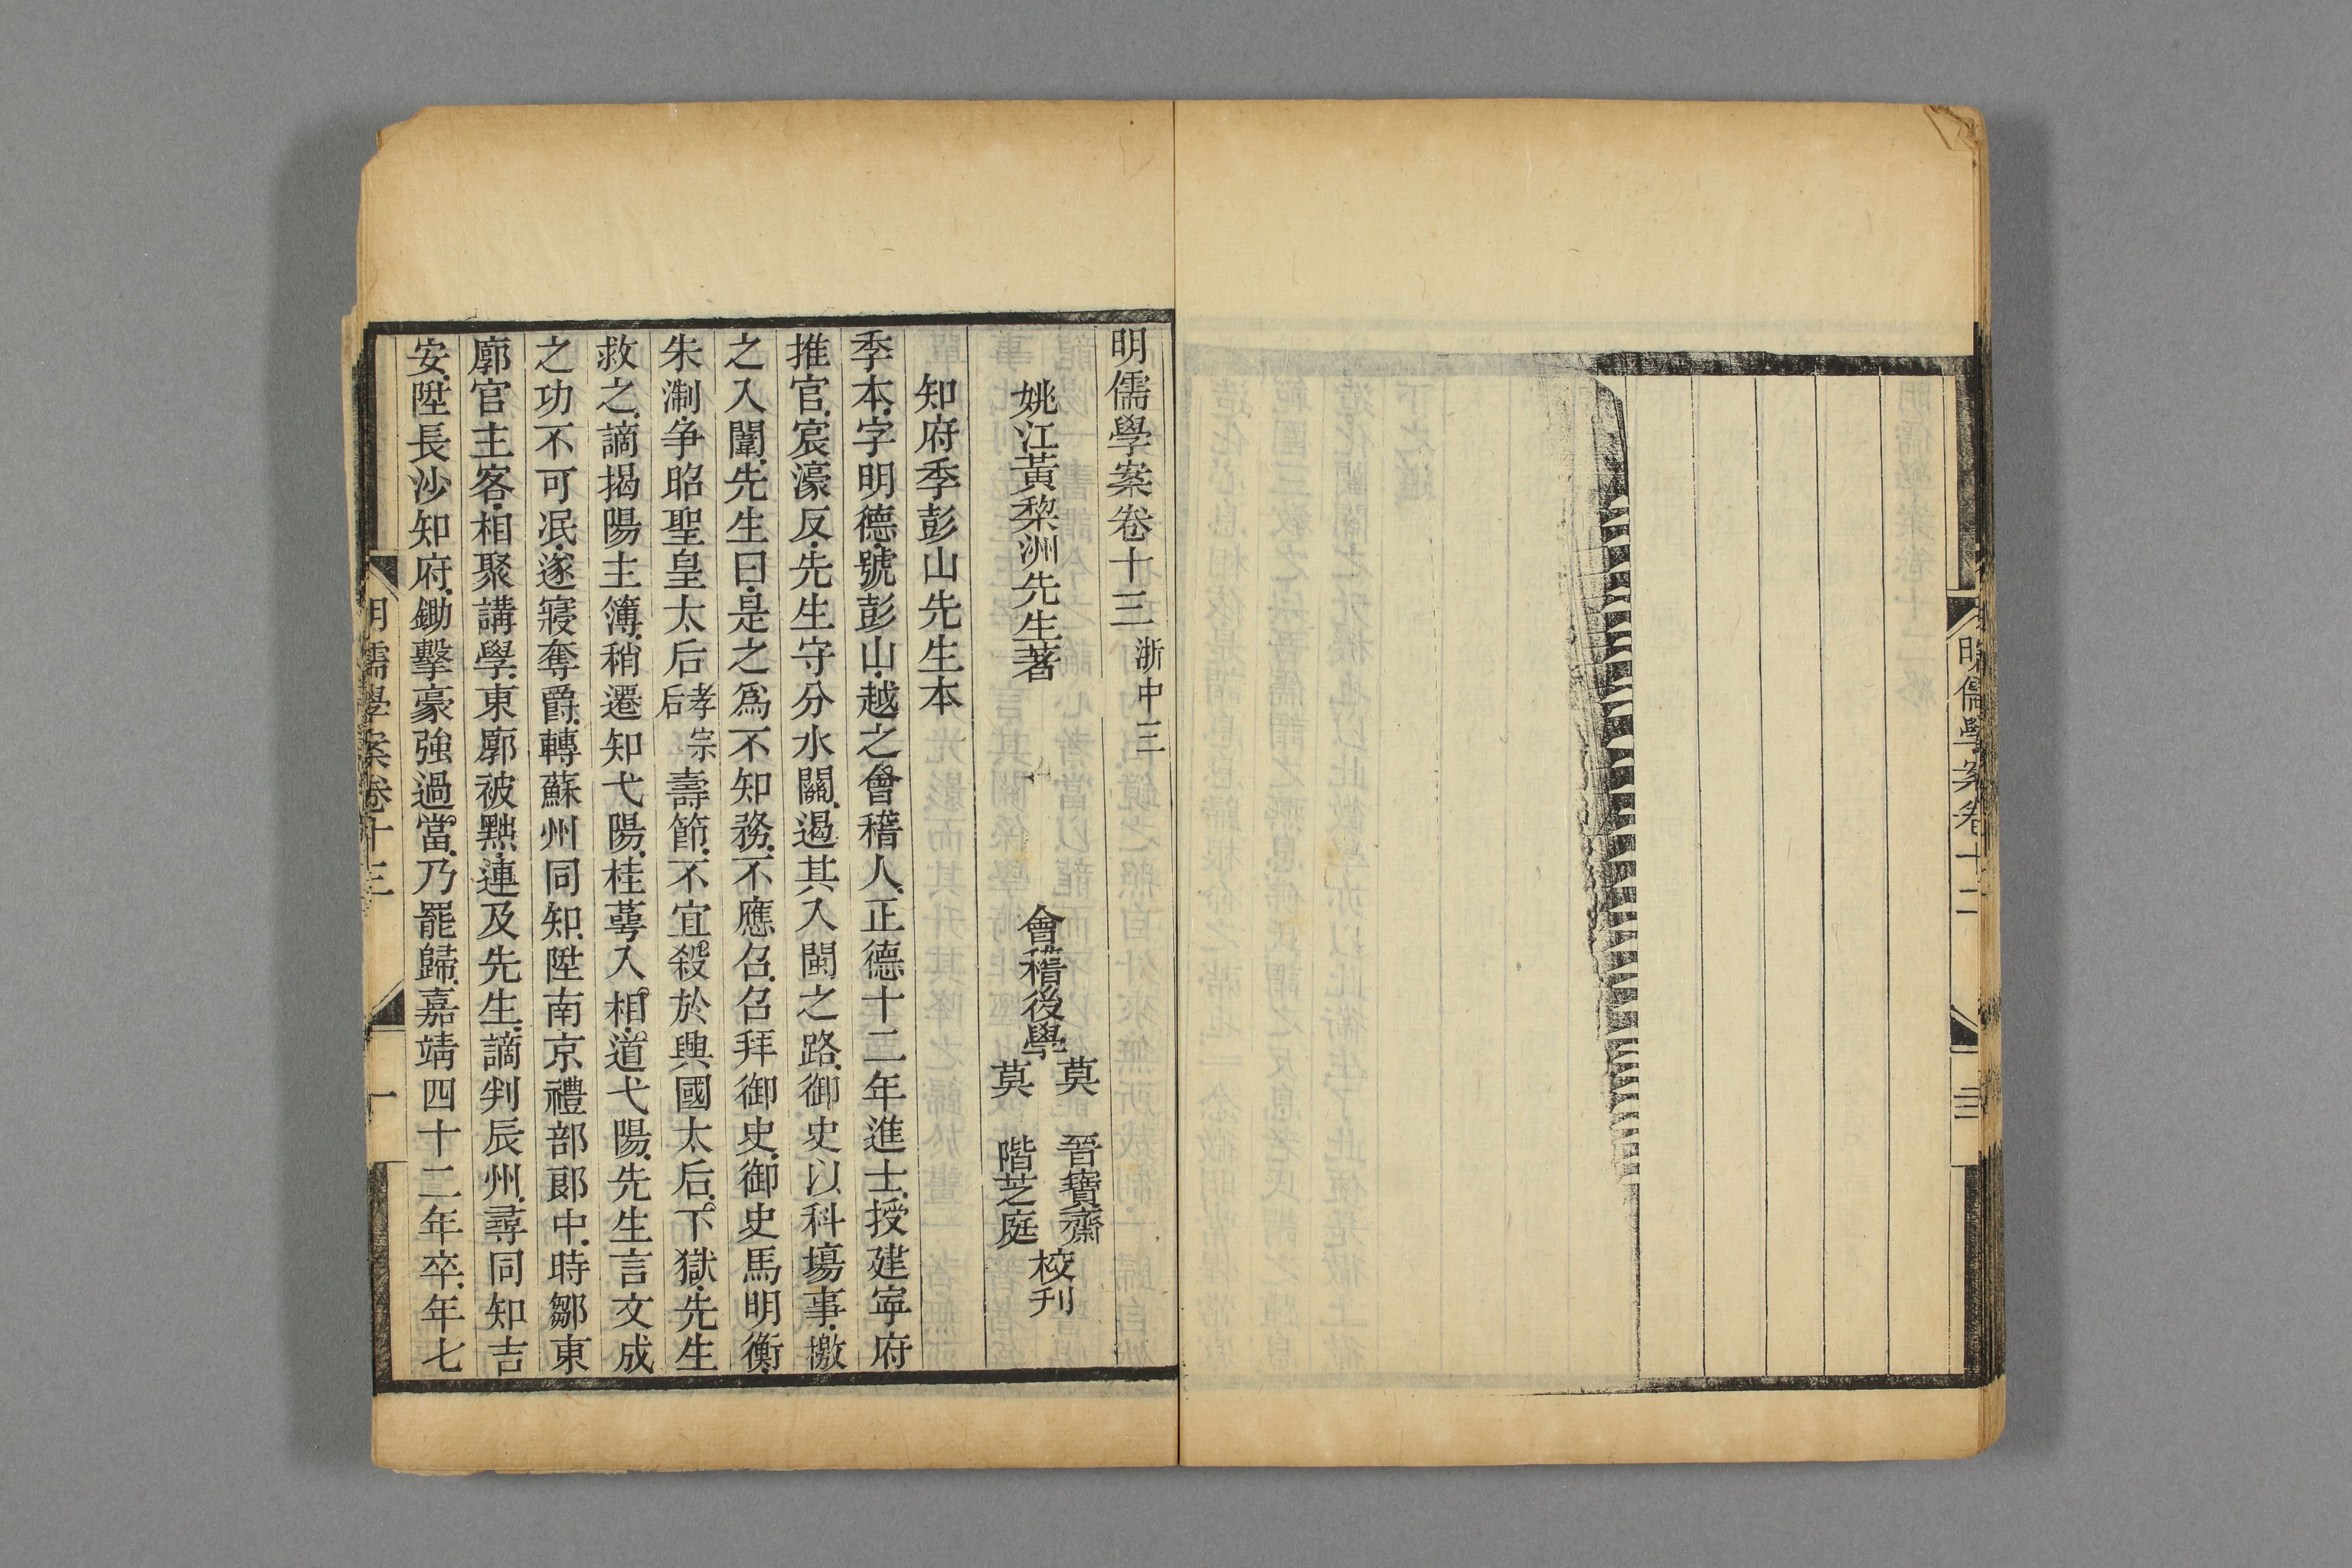 明儒學案卷十二
三
明儒學案卷十三 浙中三
姚江黃棃洲先生著
會稽後學
莫晉寶齋
莫階芝庭
校刋
知府季彭山先生本
季本字明德號彭山越之會稽人正德十二年進士授建寧府
推官宸濠反先生守分水關遏其入閩之路御史以科塲事檄
之入闈先生曰是之爲不知務不應召召拜御史御史馬明衡
朱淛爭昭聖皇太后孝宗后壽節不宜殺於興國太后下獄先生
救之謫揭陽主簿稍遷知弋陽桂萼入相道弋陽先生言文成
之功不可泯遂寢奪爵轉蘇州同知陞南京禮部郞中時鄒東
廓官主客相聚講學東廓被黜連及先生謫判辰州尋同知吉
安陞長沙知府鋤擊豪強過當乃罷歸嘉靖四十二年卒年七
明儒學案卷十三
一